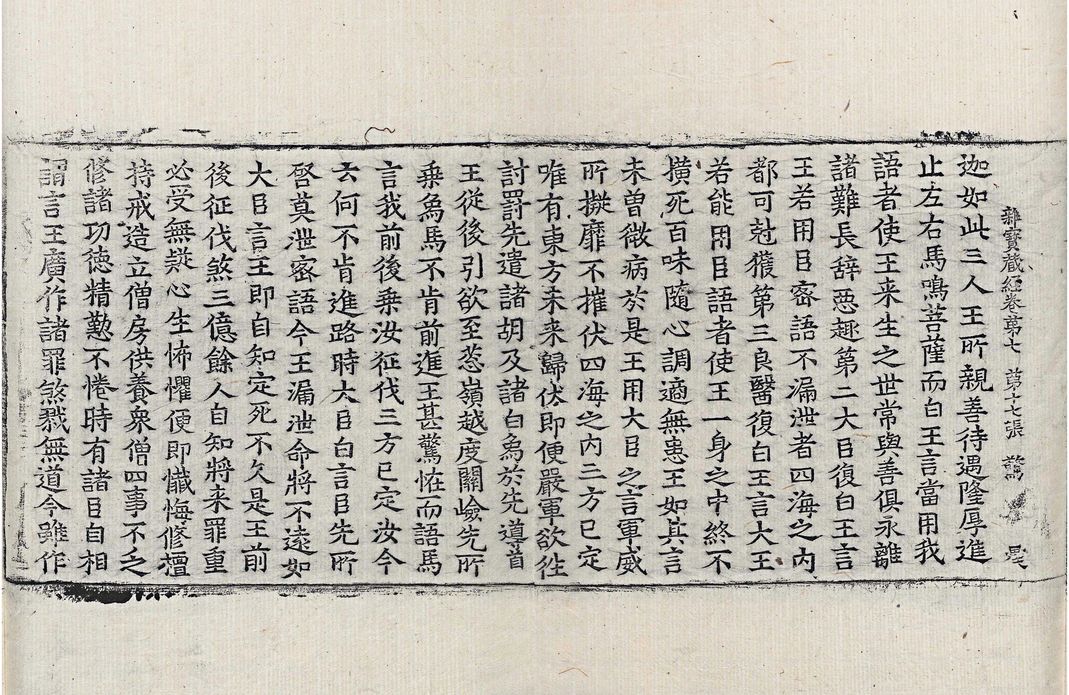 雜寶藏經卷第七 第十七張 驚
迦如此三人王所親善待遇隆厚進
止左右馬鳴菩薩而白王言當用我
語者使王来生之世常與善俱永離
諸難長辞惡趣第二大臣復白王言
王若用臣密語不漏泄者四海之内
都可尅獲第三良醫復白王言大王
若能用臣語者使王一身之中終不
橫死百味隨心調適無患王如其言
未曾微病於是王用大臣之言軍威
所擬靡不摧伏四海之内三方已定
唯有東方未来歸伏即便嚴軍欲往
討罰先遣諸胡及諸白象於先導首
王從後引欲至葱嶺越度關嶮先所
乗象馬不肯前進王甚驚恠而語馬
言我前後乗汝征伐三方已定汝今
云何不肯進路時大臣白言臣先所
啓莫泄密語今王漏泄命將不遠如
大臣言王即自知定死不久是王前
後征伐煞三億餘人自知將来罪重
必受無疑心生怖懼便即懺悔修檀
持戒造立僧房供養衆僧四事不乏
修諸功徳精懃不惓時有諸臣自相
謂言王廣作諸罪煞戮無道今雖作